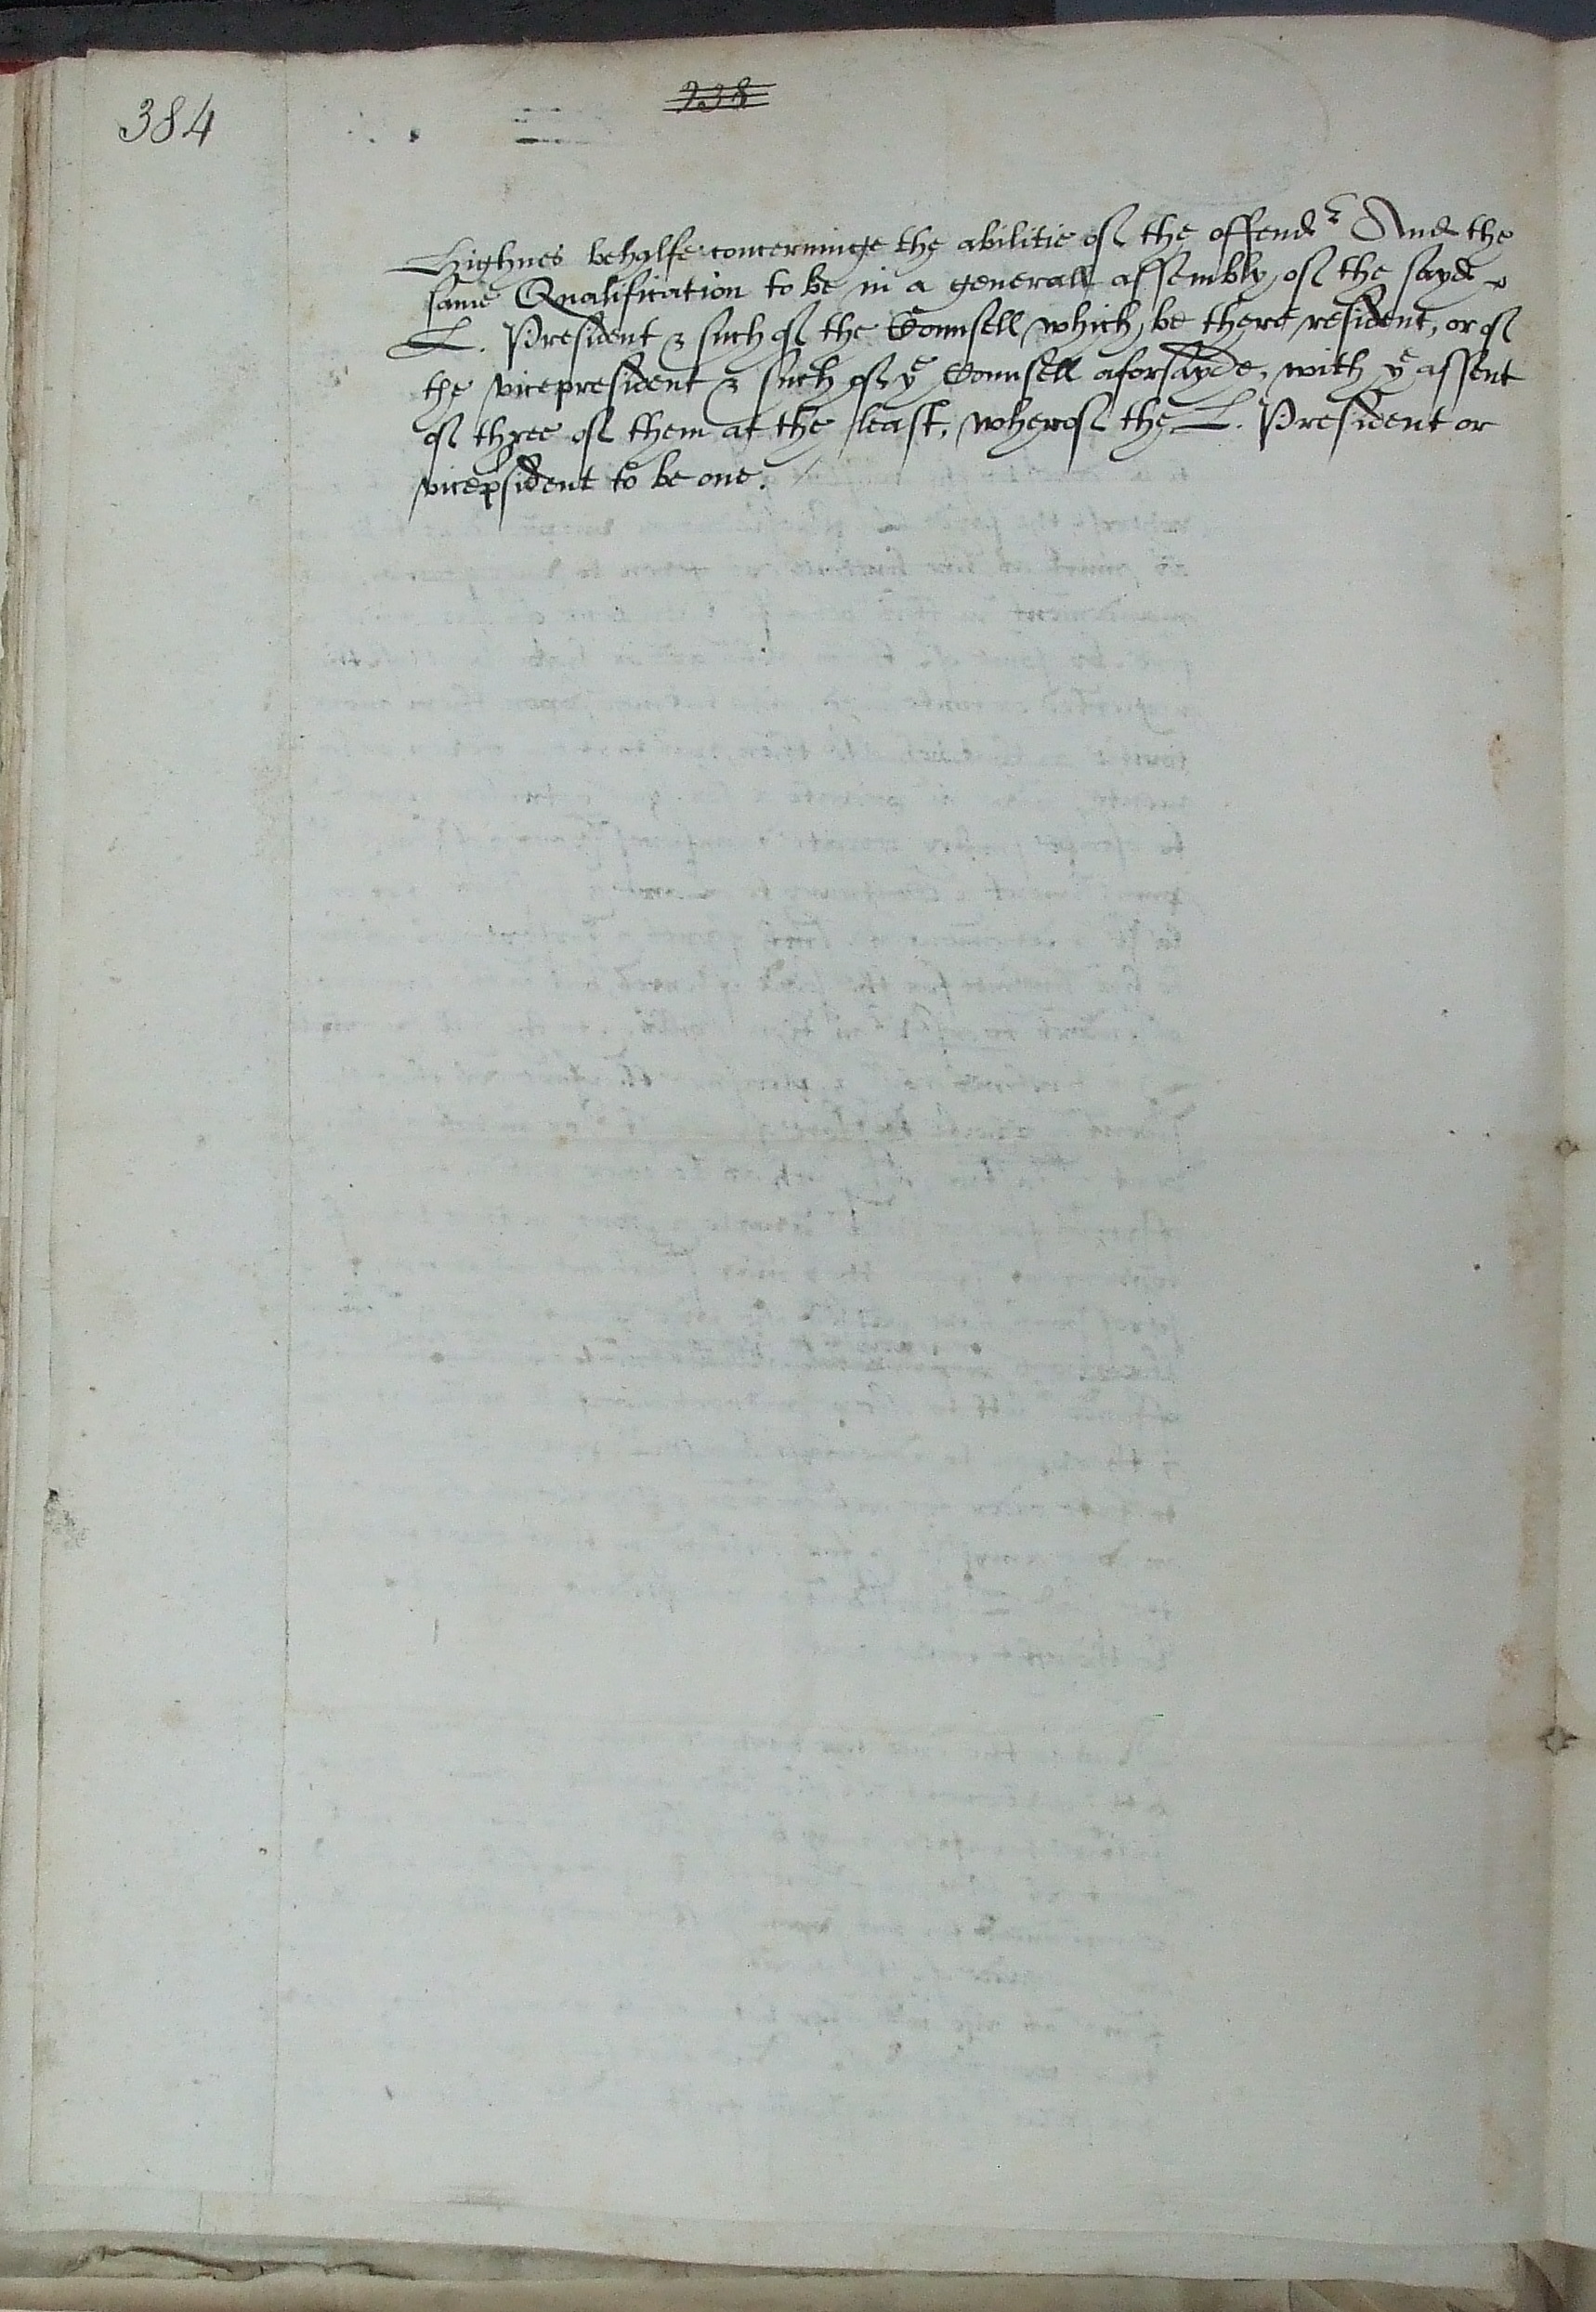 384
Highnes behalfe concerninge the abilitie of the offendr And the
same Qualification to be in a generall assembly of the sayde
L. President & such of the Counsell which be there resident, or of
the vicepresident & such of ye Counsell aforsayde, with ye assent
of three of them at the least, wherof the L. President or
vicepsident to be one.